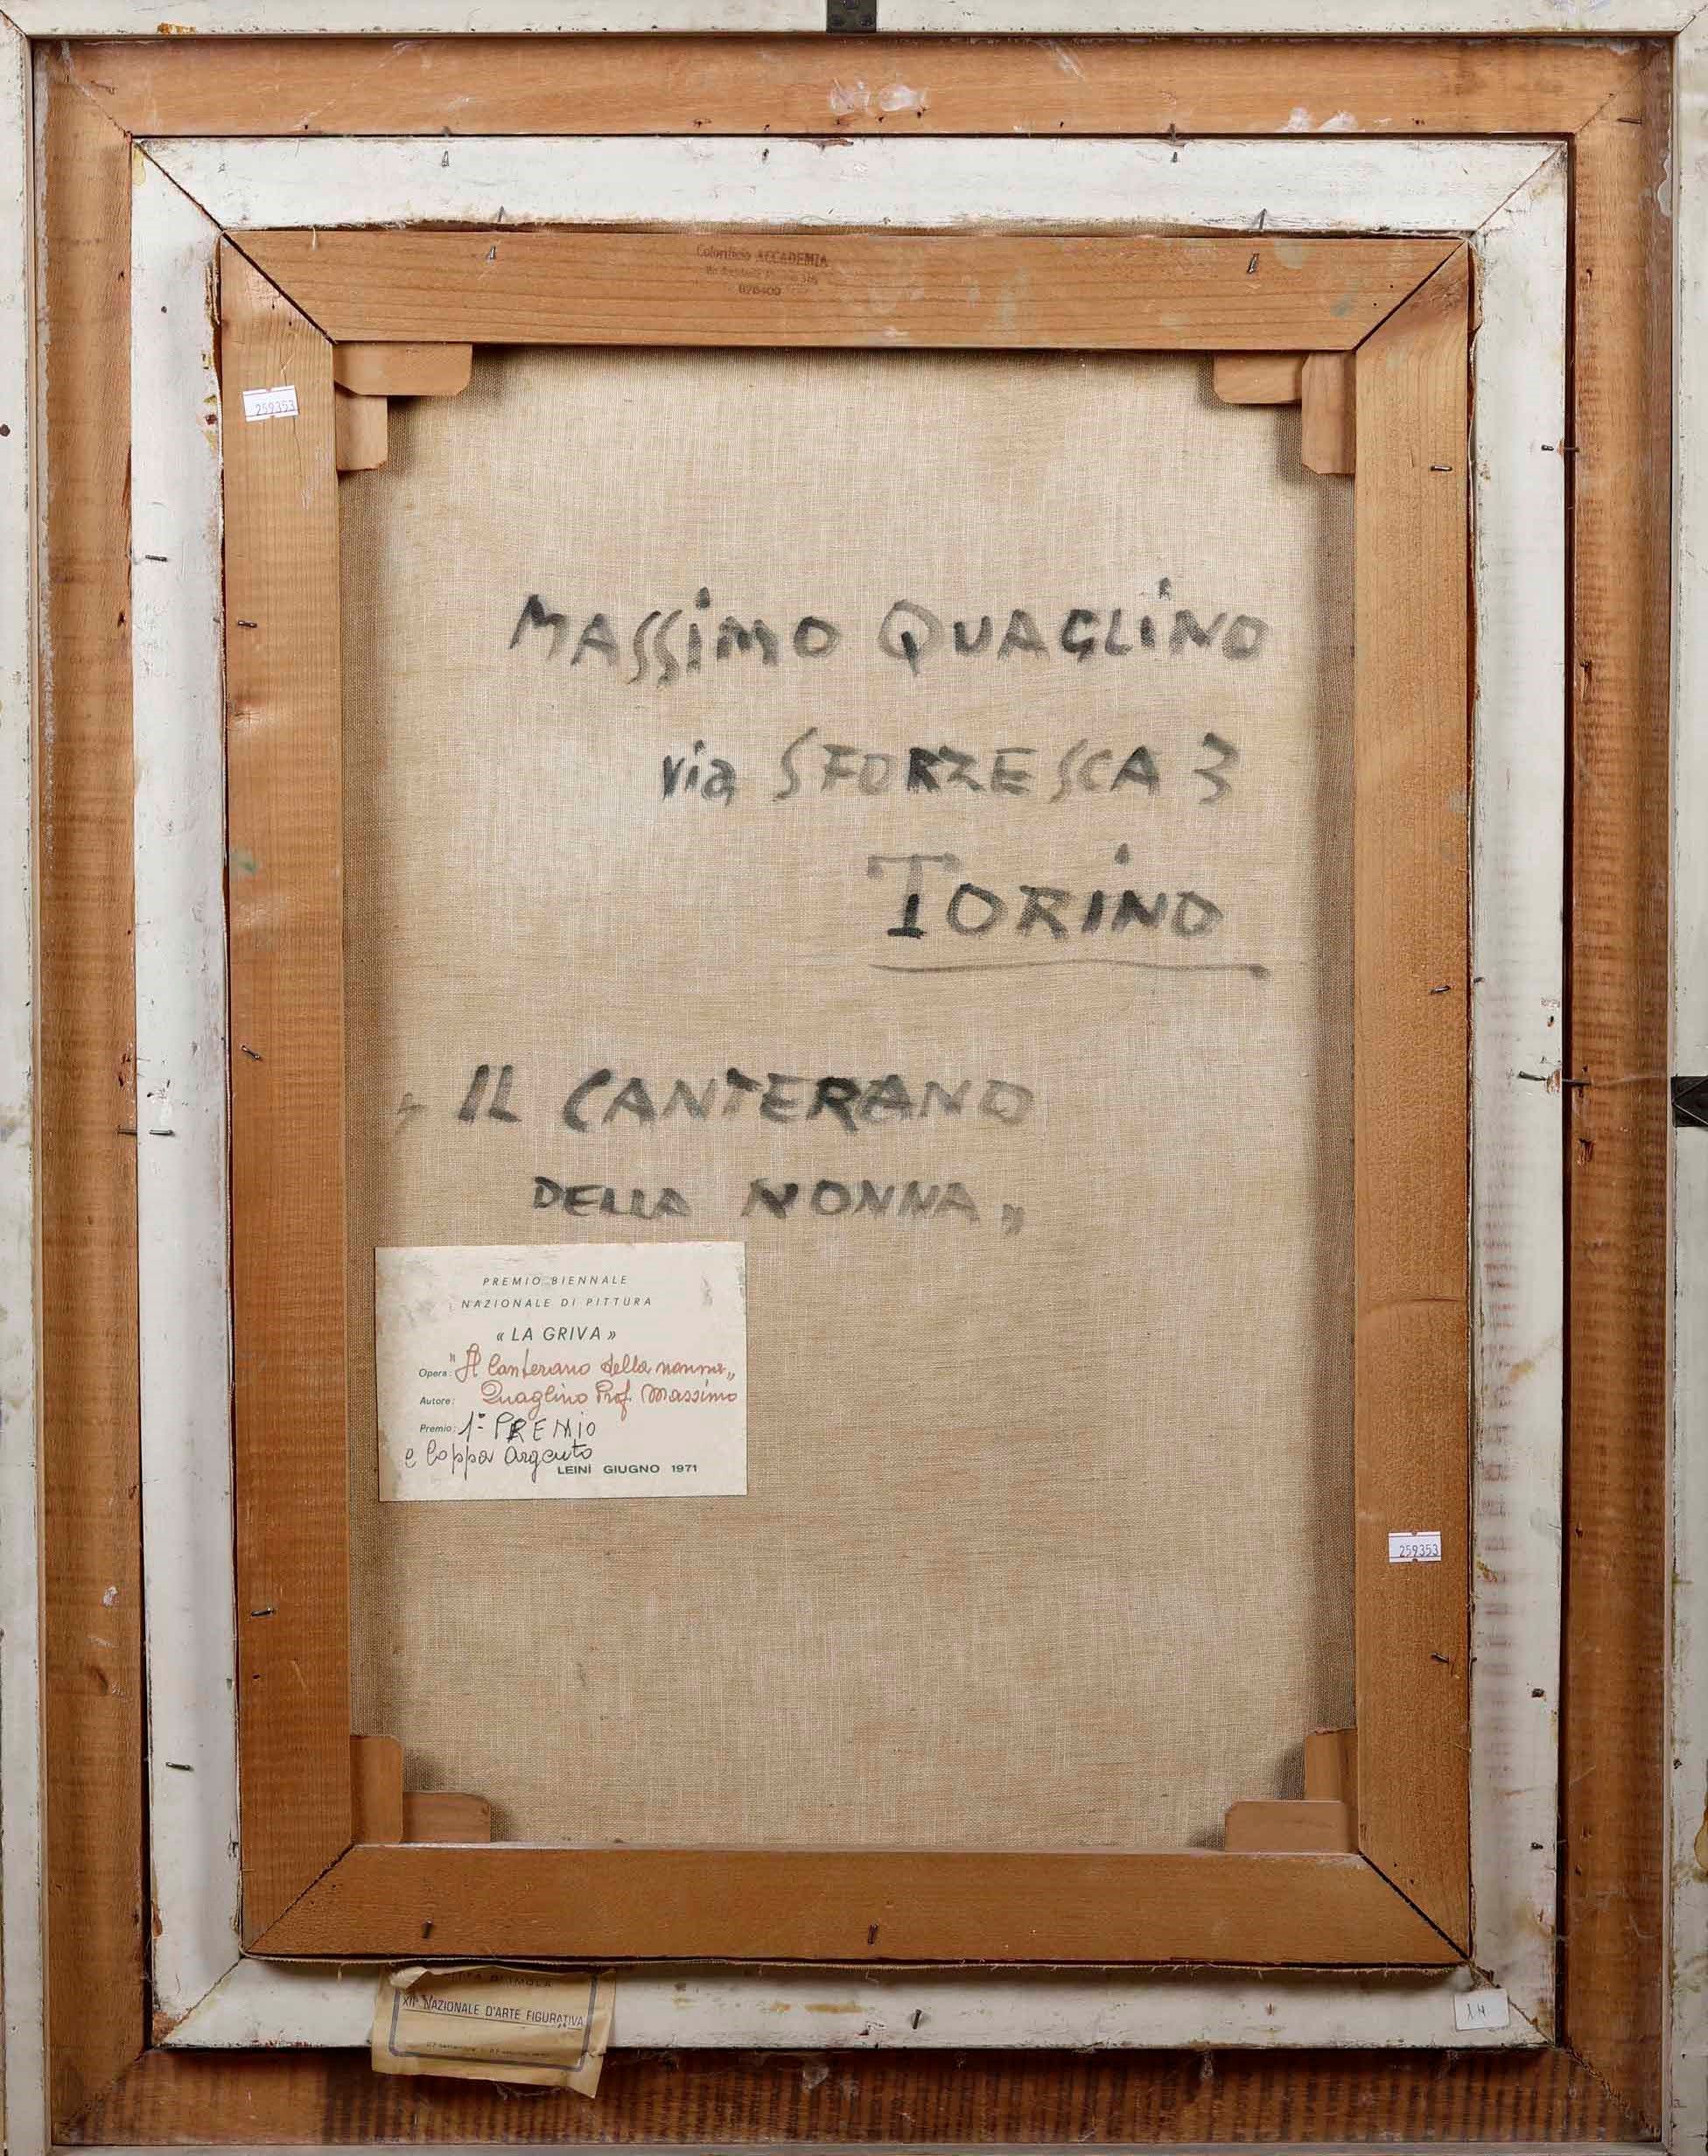 Colorificio ACCADEMIA
259353
MASSiMO QUAGLiNO
via SFORZESCA 3
TORiNO
IL CANTERANO
DELLA NONNA „
PREMIO BIENNALE
NAZIONALE DI PITTURA
« LA GRIVA »
Opera: "Il Canterano della nonna„
Autore: Quaglino Prof. Massimo
Premio: 1° PREMiO
e Coppa argento
LEINÌ GIUGNO 1971
259353
DI IMOLA
XII^ NAZIONALE D'ARTE FIGURATIVA
14